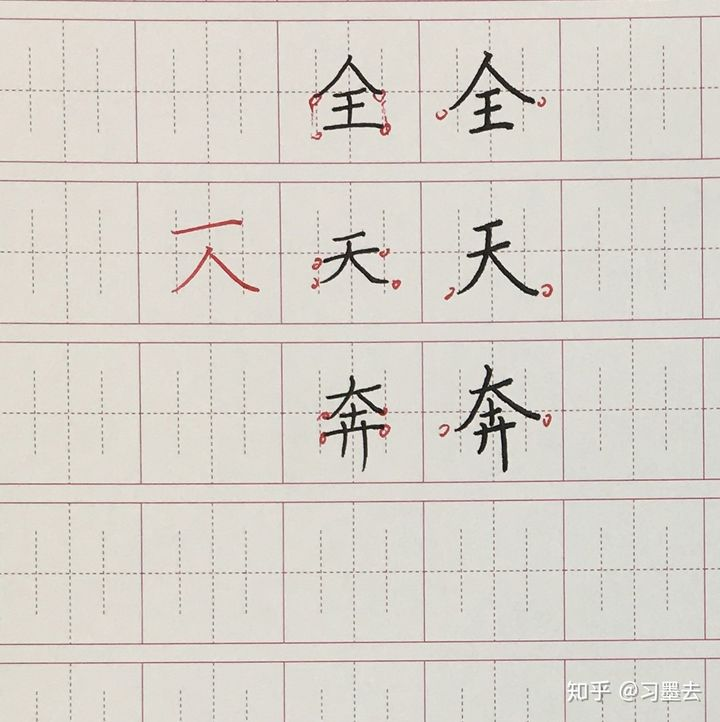 全 全
天 天
奔 奔
知乎 @习墨去